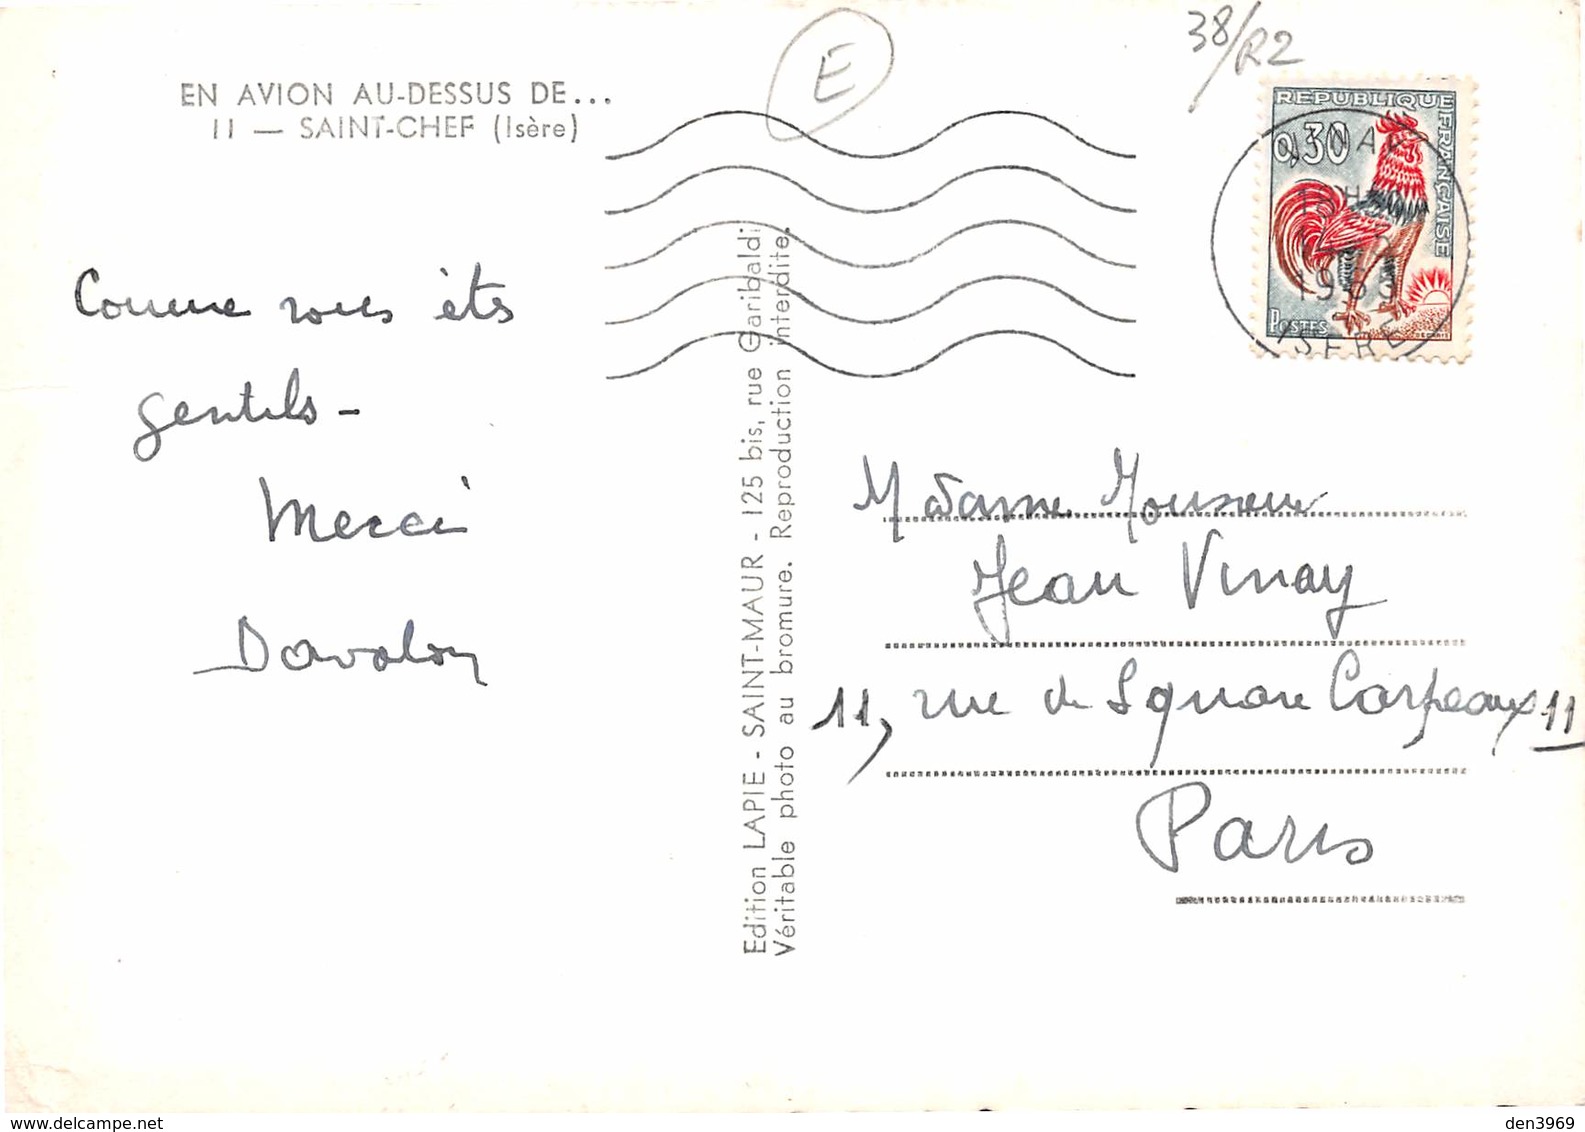 38/R2
E
EN AVION AU-DESSUS DE...
11 — SAINT-CHEF (Isère)
REPUBLIQUE FRANÇAISE
0,30
POSTES
1969
ISERE
Comme vous êts
gentils -
Merci
Davalon
Edition LAPIE - SAINT-MAUR - 125 bis, rue Garibaldi
Véritable photo au bromure. Reproduction interdite.
Madame Monsieur
Jean Vinay
11, rue de Square Carpeaux 11
Paris
den3969